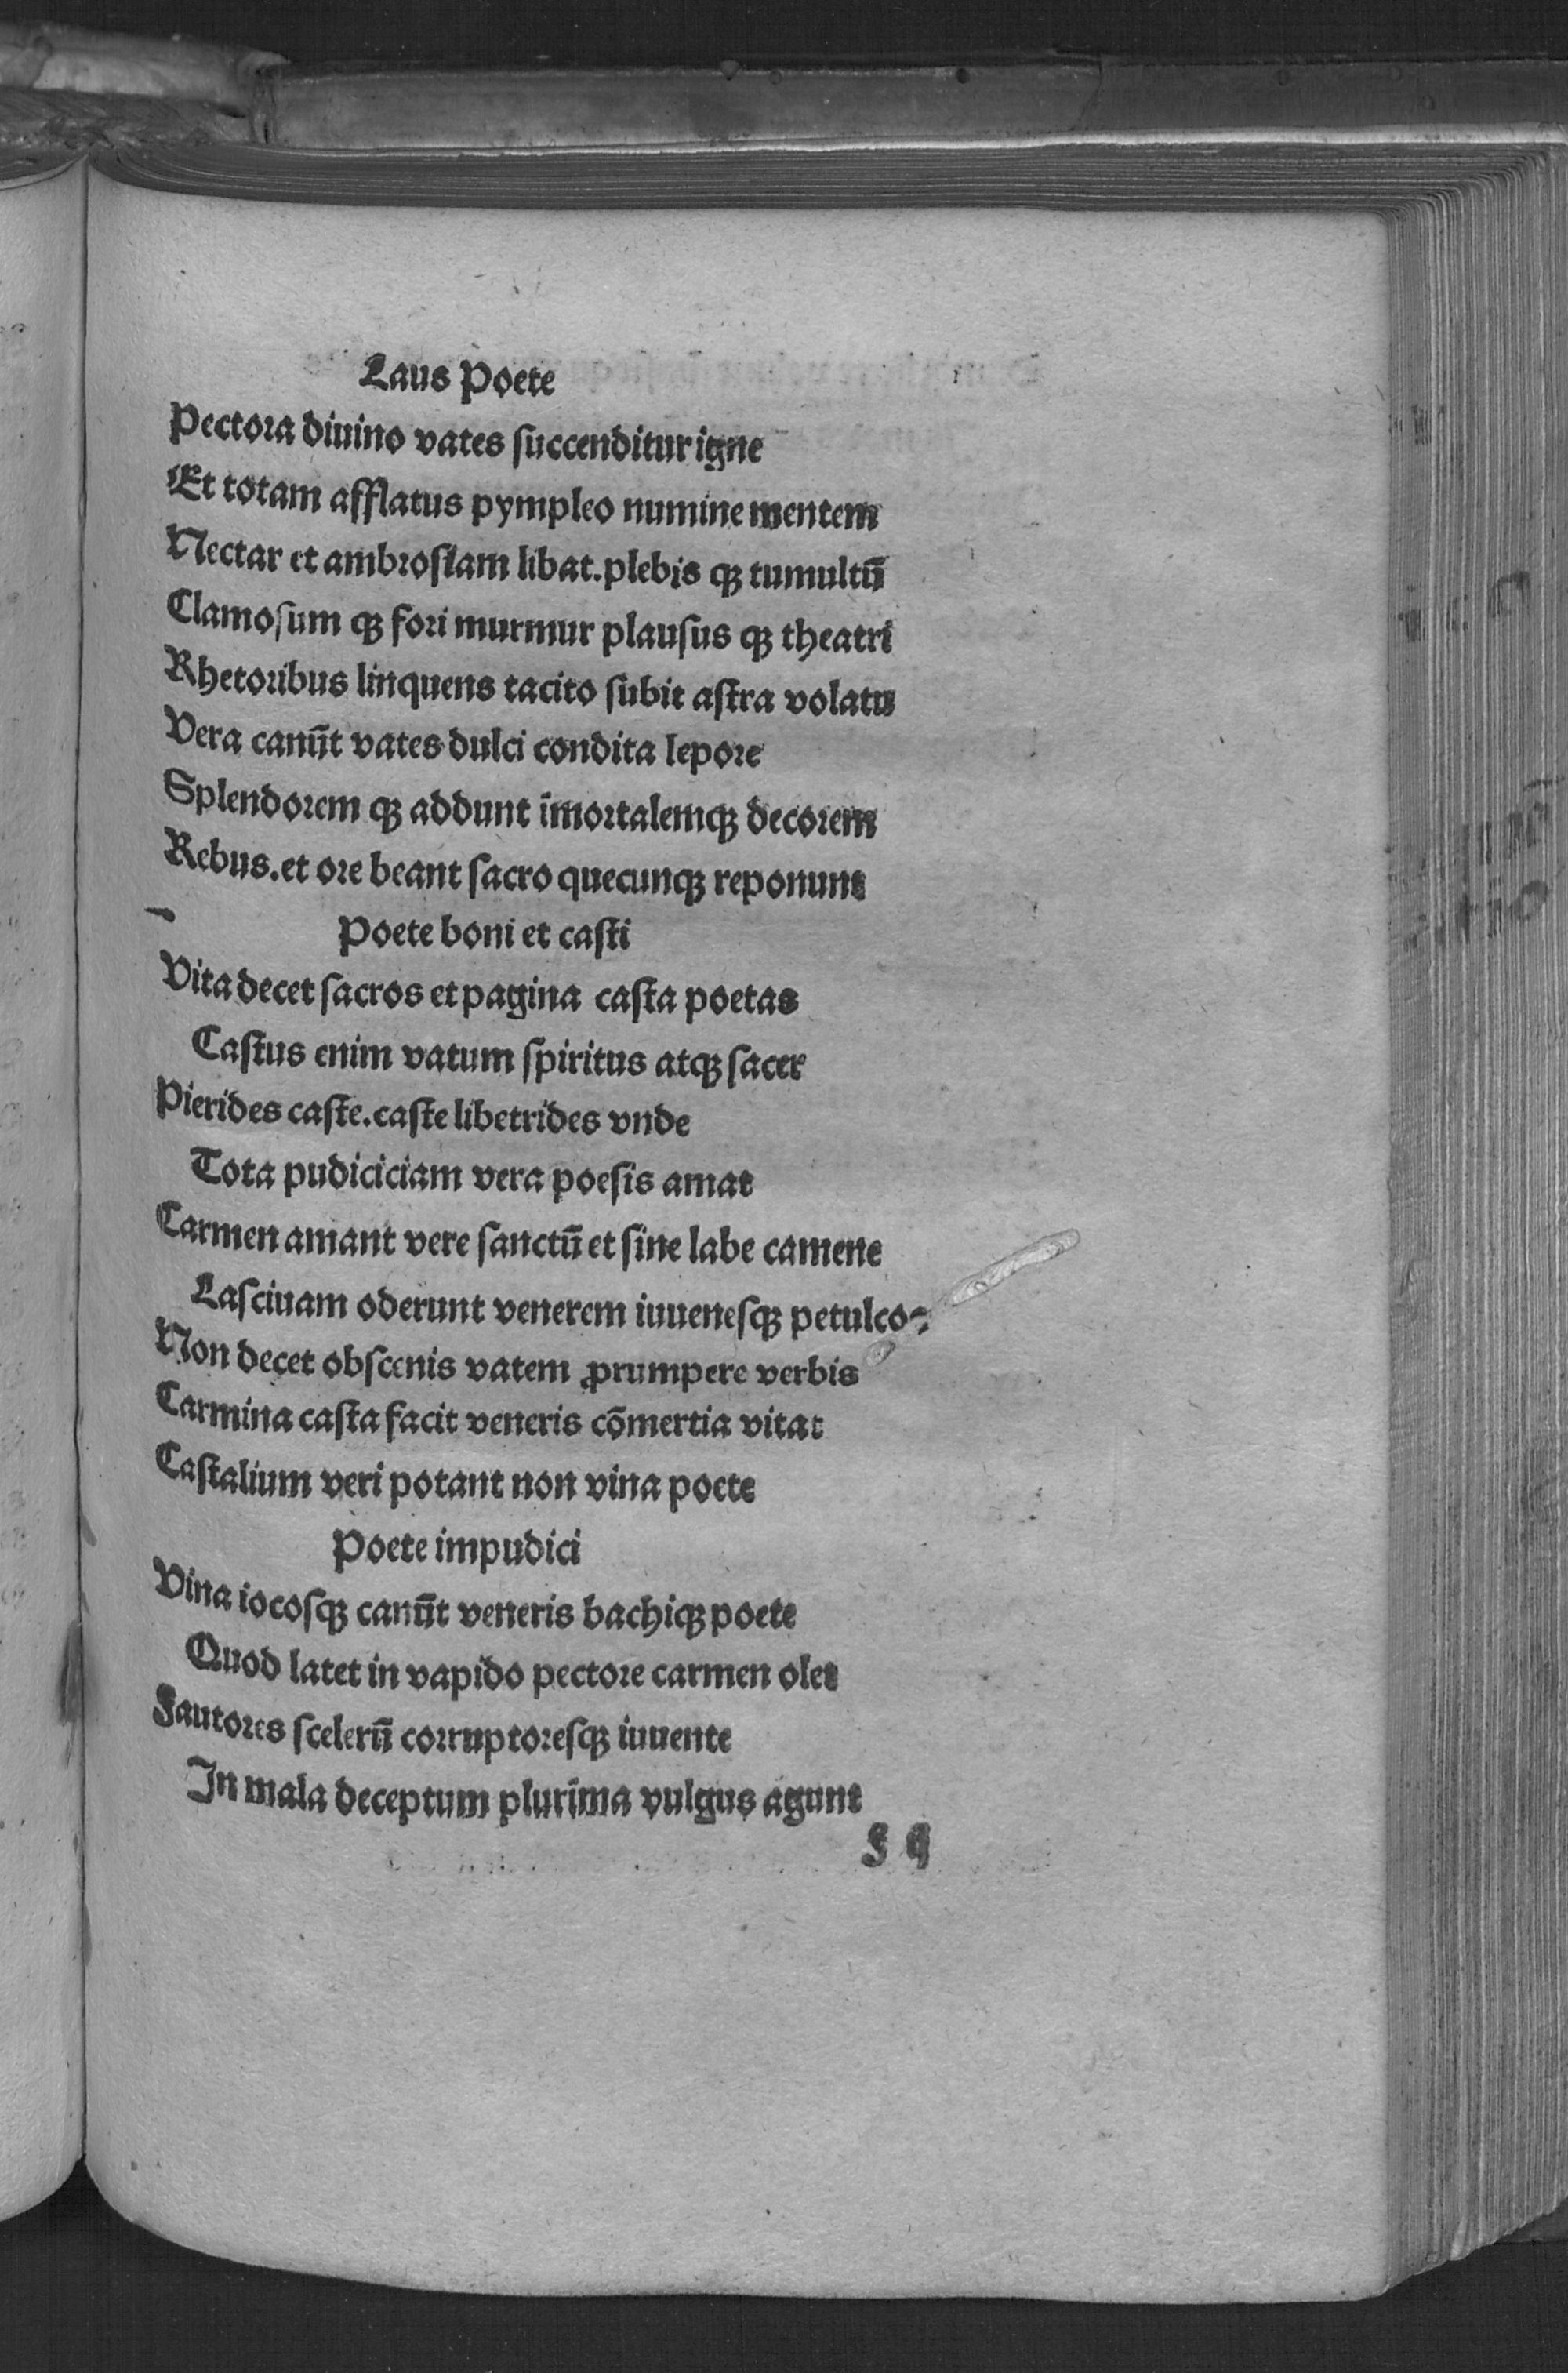 Laus Poete
Pectora diuino vates succenditur igne
Et totam afflatus pympleo numine mentem
Nectar et ambrosiam libat. plebis qꝫ tumultū
Clamosum qꝫ fori murmur plausus qꝫ theatri
Rhetoribus linquens tacito subit astra volatu
Vera canūt vates dulci condita lepore
Splendorem qꝫ addunt īmortalemqꝫ decorem
Rebus. et ore beant sacro quecunqꝫ reponunt
Poete boni et casti
Vita decet sacros et pagina casta poetas
Castus enim vatum spiritus atqꝫ sacer
Pierides caste. caste libetrides vnde
Tota pudiciciam vera poesis amat
Carmen amant vere sanctū et sine labe camene
Lasciuam oderunt venerem iuuenesqꝫ petulcos
Non decet obscenis vatem ꝓrumpere verbis
Carmina casta facit veneris cōmertia vitat
Castalium veri potant non vina poete
Poete impudici
Vina iocosqꝫ canūt veneris bachiqꝫ poete
Quod latet in vapido pectore carmen olet
Fautores scelerū corruptoresqꝫ iuuente
In mala deceptum plurima vulgus agunt